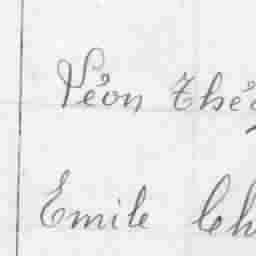 Léon Thé
Emile Ch